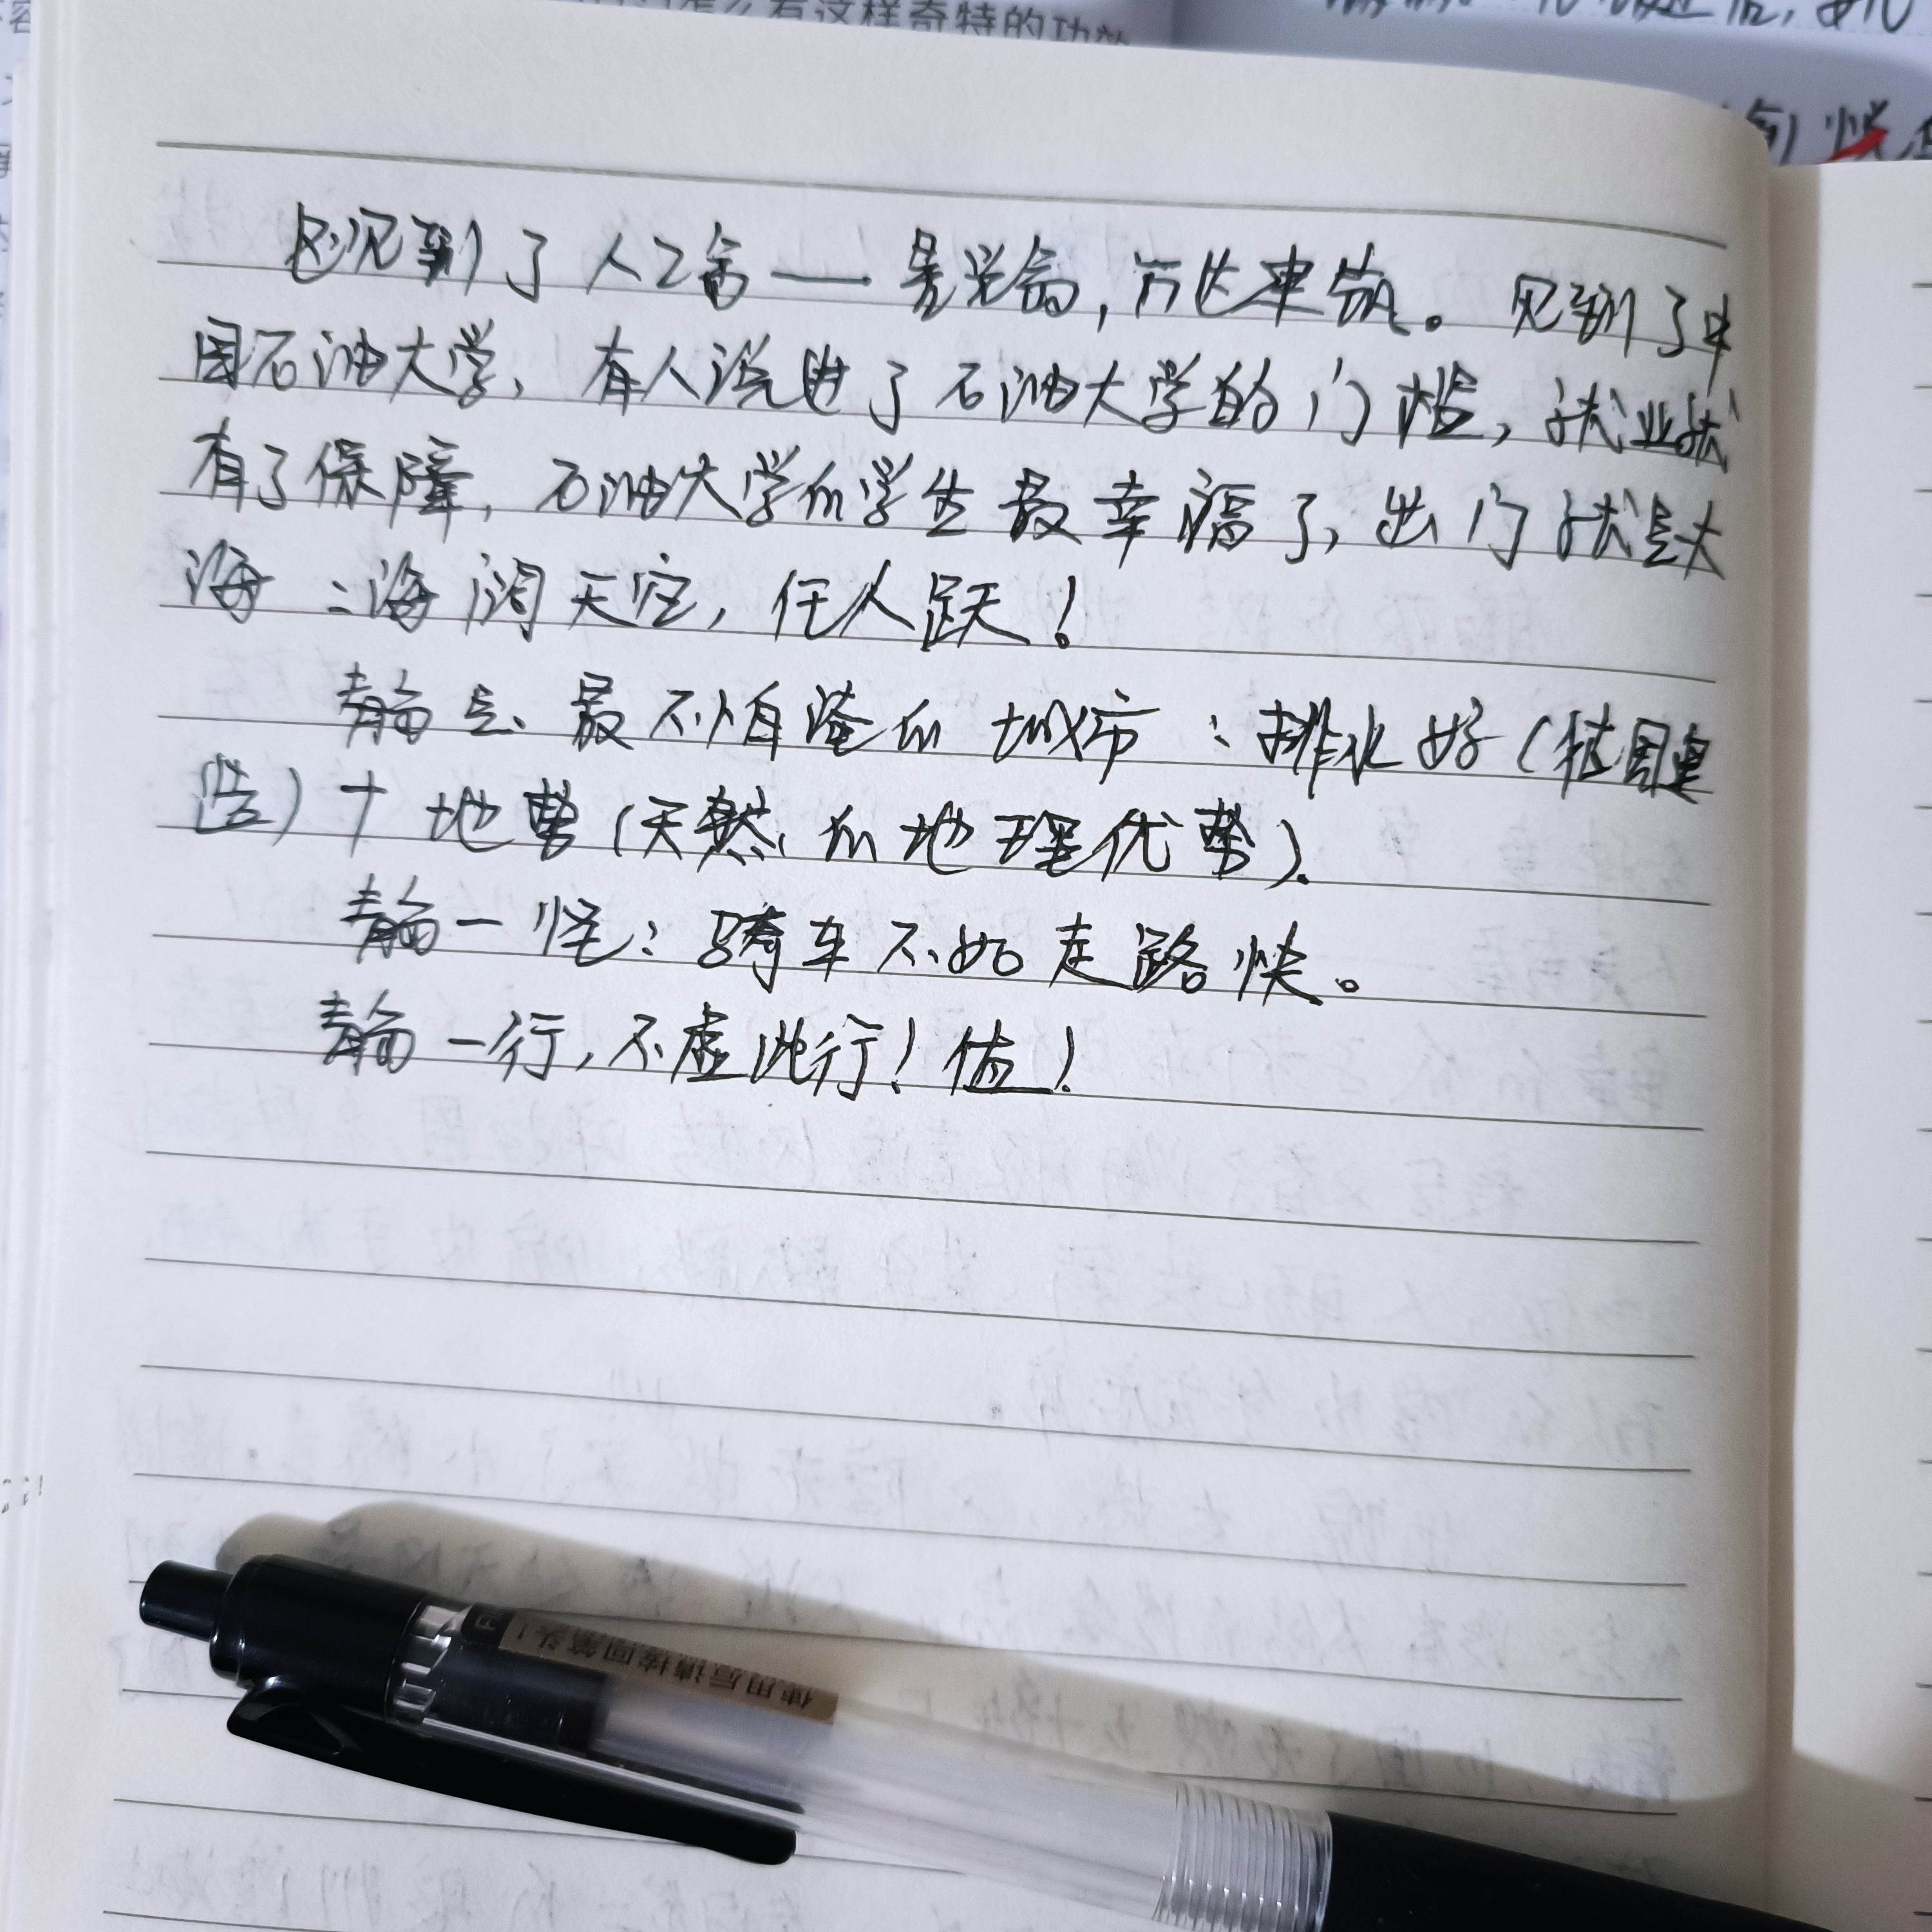 怎么有这样奇特的功效
还见到了人工岛——星光岛,万达建筑。见到了中
国石油大学,有人说进了石油大学的门槛,就业就
有了保障,石油大学的学生最幸福了,出门就是大
海:海阔天空,任人跃!
青岛是最不怕淹的城市:排水好(德国建
造)+地势(天然的地理优势).
青岛一怪:骑车不如走路快。
青岛一行,不虚此行!值!
使用后请按回笔头!